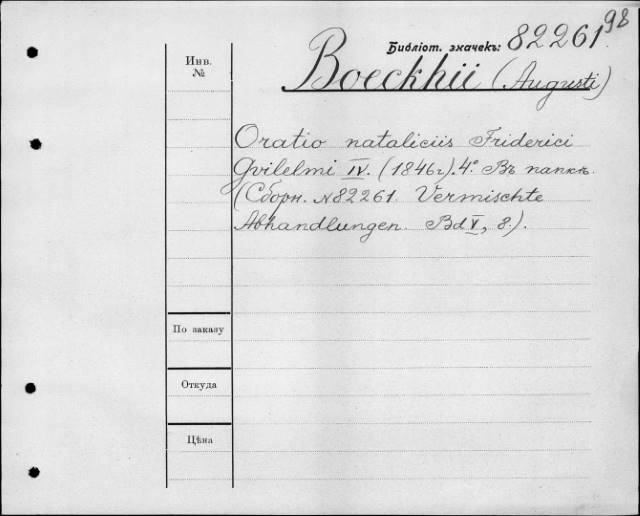 98
Библіот. значекъ: 82261.
Инв.
№
Boeckhii (Augusti)
Oratio nataliciis Friderici
Gvilelmi IV. (1846г). 4° Въ папкѣ.
(Сборн. №82261. Vermischte
Abhandlungen. Bd V, 8.).
По заказу
Откуда
Цѣна